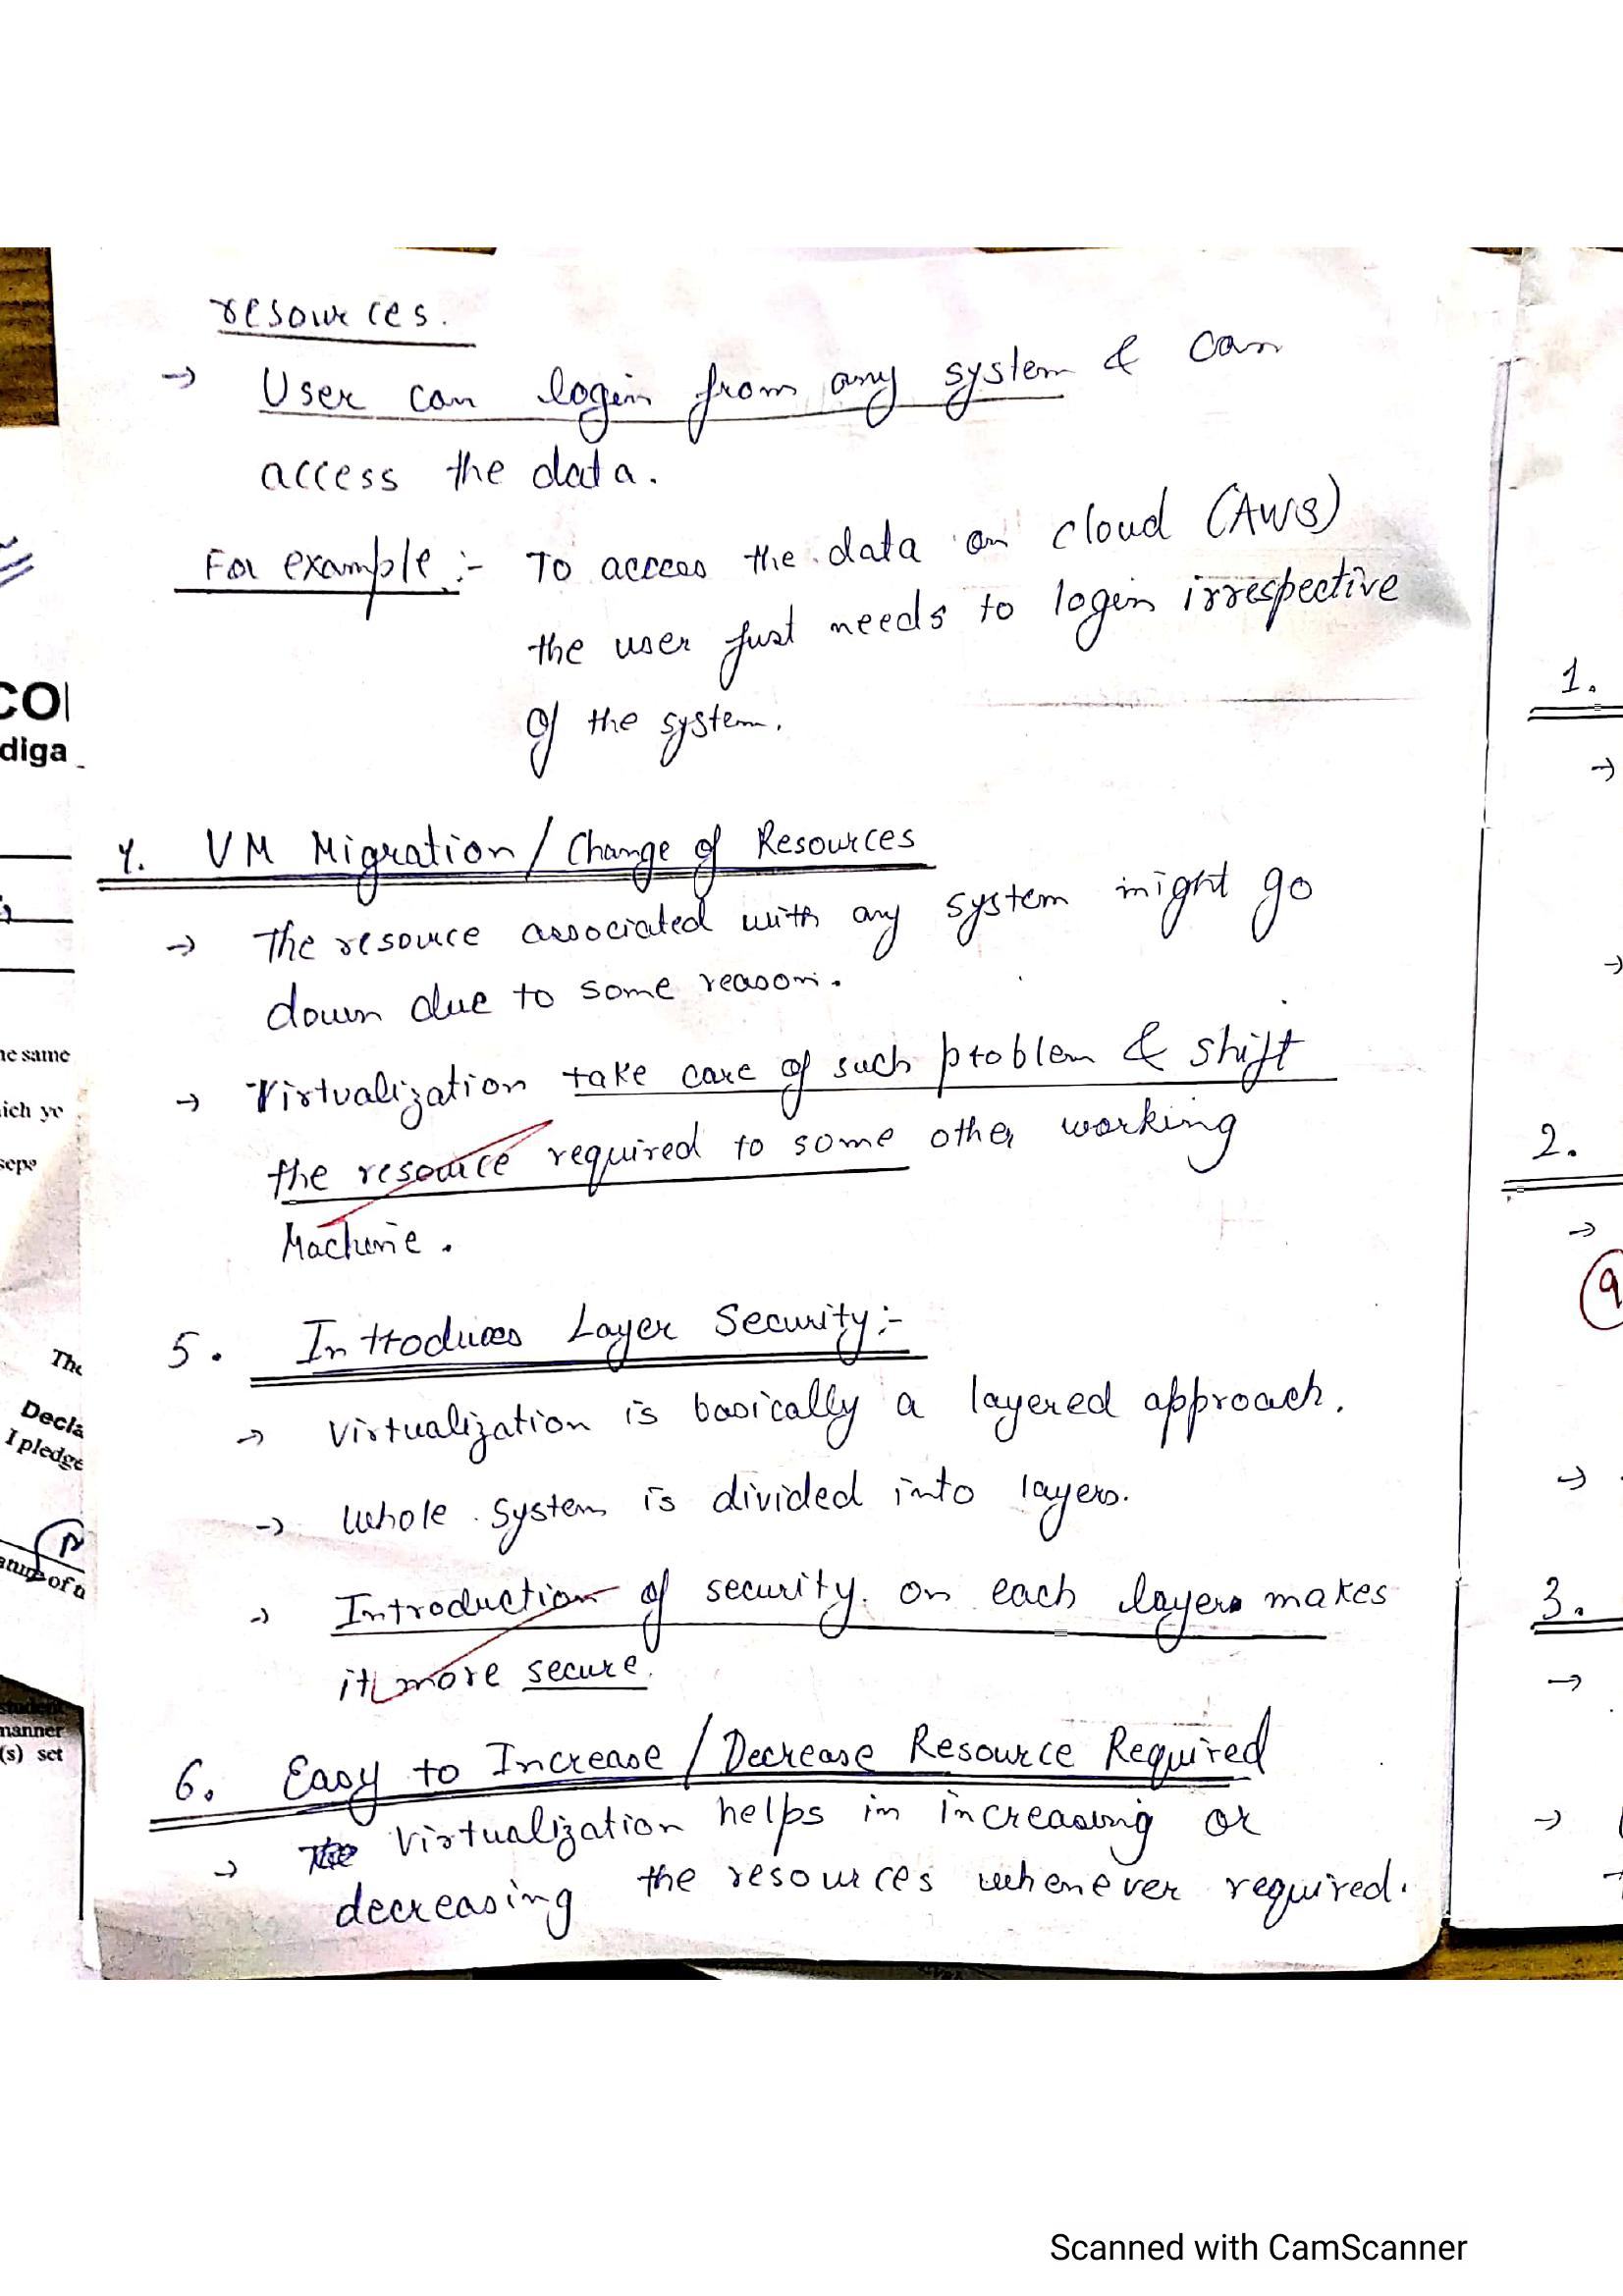 resources.
→ User can login from any system & can
access the data.
For example :- To access the data on cloud (AWS)
the user just needs to login irrespective
of the system.
4. VM Migration / Change of Resources
→ The resource associated with any system might go
down due to some reason.
→ Virtualization take care of such problem & shift
the resource required to some other working
Machine.
5. Introduces Layer Security :-
→ Virtualization is basically a layered approach.
→ Whole system is divided into layers.
→ Introduction of security on each layers makes
it more secure.
6. Easy to Increase / Decrease Resource Required
→ Virtualization helps in increasing or
decreasing the resources whenever required.
COI
diga
ne same
ich ye
The
Decla
I pledge
of a
student
manner
(s) set
1.
→
→
2.
→
a
→
3.
→
→
Scanned with CamScanner